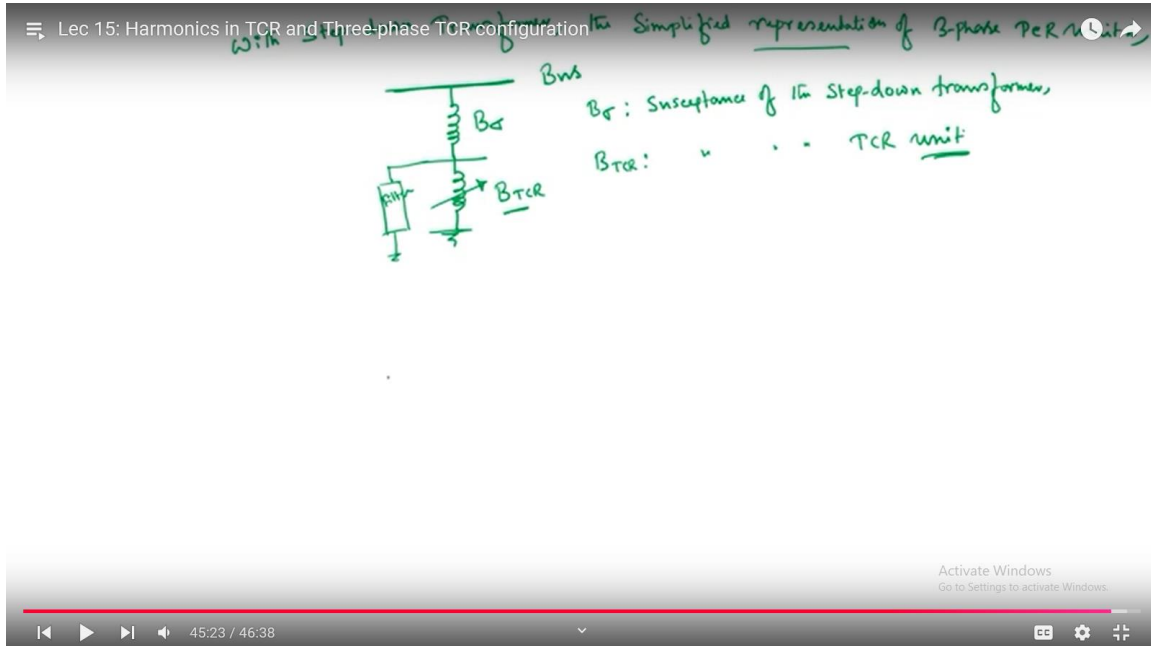 Lec 15: Harmonics in TCR and Three-phase TCR configuration
With Step-down Transformer, the Simplified representation of 3-phase
Bus
Bσ
Bσ : Susceptance of the Step-down transformer,
BTCR : " " " TCR unit
filter
BTCR
Activate Windows
Go to Settings to activate Windows.
45:23 / 46:38
CC